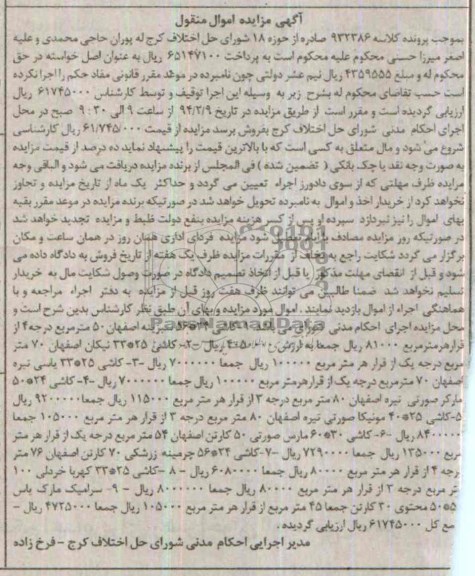 آگهی مزایده اموال منقول
بموجب پرونده کلاسه ۹۳۲۳۸۶ صادره از حوزه ۱۸ شورای حل اختلاف کرج له پوران حاجی محمدی و علیه
اصغر میرزا حسنی محکوم علیه محکوم است به پرداخت ۶۵۱۴۷۱۰۰ ریال به عنوان اصل خواسته در حق
محکوم له و مبلغ ۴۳۵۹۵۵۵ ریال نیم عشر دولتی چون نامبرده در موعد مقرر قانونی مفاد حکم را اجرا نکرده
است حسب تقاضای محکوم له بشرح زیر به وسیله این اجرا توقیف و توسط کارشناس ۶۱۷۴۵۰۰۰ ریال
ارزیابی گردیده است و مقرر است از طریق مزایده در تاریخ ۹۴/۳/۹ از ساعت ۹ الی ۹:۳۰ صبح در محل
اجرای احکام مدنی شورای حل اختلاف کرج بفروش برسد مزایده از قیمت ۶۱/۷۴۵/۰۰۰ ریال کارشناسی
شروع می شود و مال متعلق به کسی است که با بالاترین قیمت را پیشنهاد نماید ده درصد از قیمت مزایده
به صورت وجه نقد یا چک بانکی ( تضمین شده ) فی المجلس از برنده مزایده دریافت می شود و الباقی وجه
مزایده ظرف مهلتی که از سوی دادورز اجراء تعیین می گردد و حداکثر یک ماه از تاریخ مزایده و تجاوز
نخواهد کرد از خریدار اخذ و اموال به نامبرده تحویل خواهد شد در صورتیکه برنده مزایده در موعد مقرر بقیه
بهای اموال را نپردازد سپرده او پس از کسر هزینه مزایده بنفع دولت ضبط و مزایده تجدید خواهد شد
در صورتیکه روز مزایده مصادف با شود مزایده فردای اداری همان روز در همان ساعت و مکان
برگزار می گردد شکایت راجع به تخلف از مقررات مزایده ظرف یک هفته از تاریخ فروش به دادگاه داده می
شود و قبل از انقضای مهلت مذکور یا قبل از اتخاذ تصمیم دادگاه در صورت وصول شکایت مال به خریدار
تسلیم نخواهد شد ضمنا طالبین می توانند ظرف هفت روز قبل از مزایده به دفتر اجراء مراجعه و با
هماهنگی اجراء از اموال بازدید نمایند . اموال مورد مزایده و بهای آن طبق نظر کارشناس بدین شرح است و
محل مزایده اجرای احکام مدنی شورای اصفهان ۵۰ مترمربع درجه ۴ از
قرار هرمترمربع ۸۱۰۰۰ ریال جمعا به ارزش ۴۰۵۰۰۰۰ ریال -۲- کاشی ۲۵*۳۳ نیکان اصفهان ۷۰ متر
مربع درجه یک از قرار هر متر مربع ۱۰۰۰۰۰ ریال جمعا ۷۰۰۰۰۰۰ ریال -۳- کاشی ۲۵*۳۳ یاسی تیره
اصفهان ۷۰ مترمربع درجه یک از قرار هرمتر مربع ۱۰۰۰۰۰ ریال جمعا ۷۰۰۰۰۰۰ ریال -۴- کاشی ۲۴*۵۰
مارکر صورتی تیره اصفهان ۸۰ متر مربع درجه ۳ از قرار هر متر مربع ۱۱۵۰۰۰ ریال جمعا ۹۲۰۰۰۰۰ ریال
۵- کاشی ۲۵*۴۰ مونیکا صورتی تیره اصفهان ۸۰ متر مربع درجه ۳ از قرار هر متر مربع ۱۰۵۰۰۰ جمعا
۸۴۰۰۰۰۰ ریال -۶- کاشی ۳۰*۶۰ مارس صورتی ۵۰ کارتن اصفهان ۵۴ متر مربع درجه یک از قرار هر متر
مربع ۱۳۵۰۰۰ ریال جمعا ۷۲۹۰۰۰۰ ریال -۷- کاشی ۲۴*۵۶ چرمینه زرشکی ۷۰ کارتن اصفهان ۷۶ متر
درجه ۴ از قرار هر متر مربع ۸۰۰۰۰ ریال جمعا ۶۰۸۰۰۰۰ ریال - ۸ - کاشی ۲۵*۳۳ کهربا خردلی ۱۰۰
متر مربع درجه ۳ از قرار هر متر مربع ۸۰۰۰۰ ریال جمعا ۸۰۰۰۰۰۰ ریال - ۹- سرامیک مارک یاس
۵۰*۵۰ محتوی ۳۰ کارتن جمعا ۴۵ متر مربع از قرار هر متر مربع ۱۰۵۰۰۰ ریال جمعا ۴۷۲۵۰۰۰ ریال -
جمع کل ۶۱۷۴۵۰۰۰ ریال ارزیابی گردیده .
مدیر اجرایی احکام مدنی شورای حل اختلاف کرج - فرخ زاده